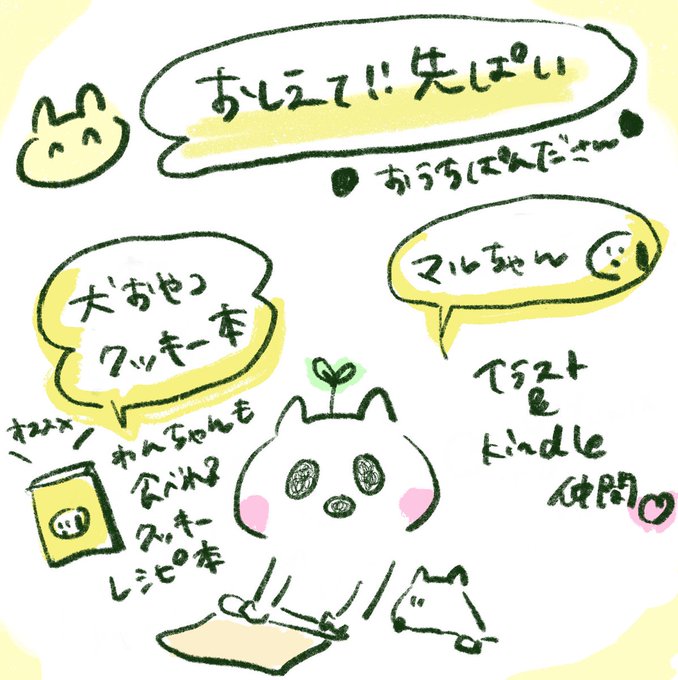 おしえて!! 先ぱい
おうちぱんださん
マルちゃん
犬おやつ
クッキー本
イラスト
&
kindle
仲間
オススメ
わんちゃんも
食べれる
クッキー
レシピ本